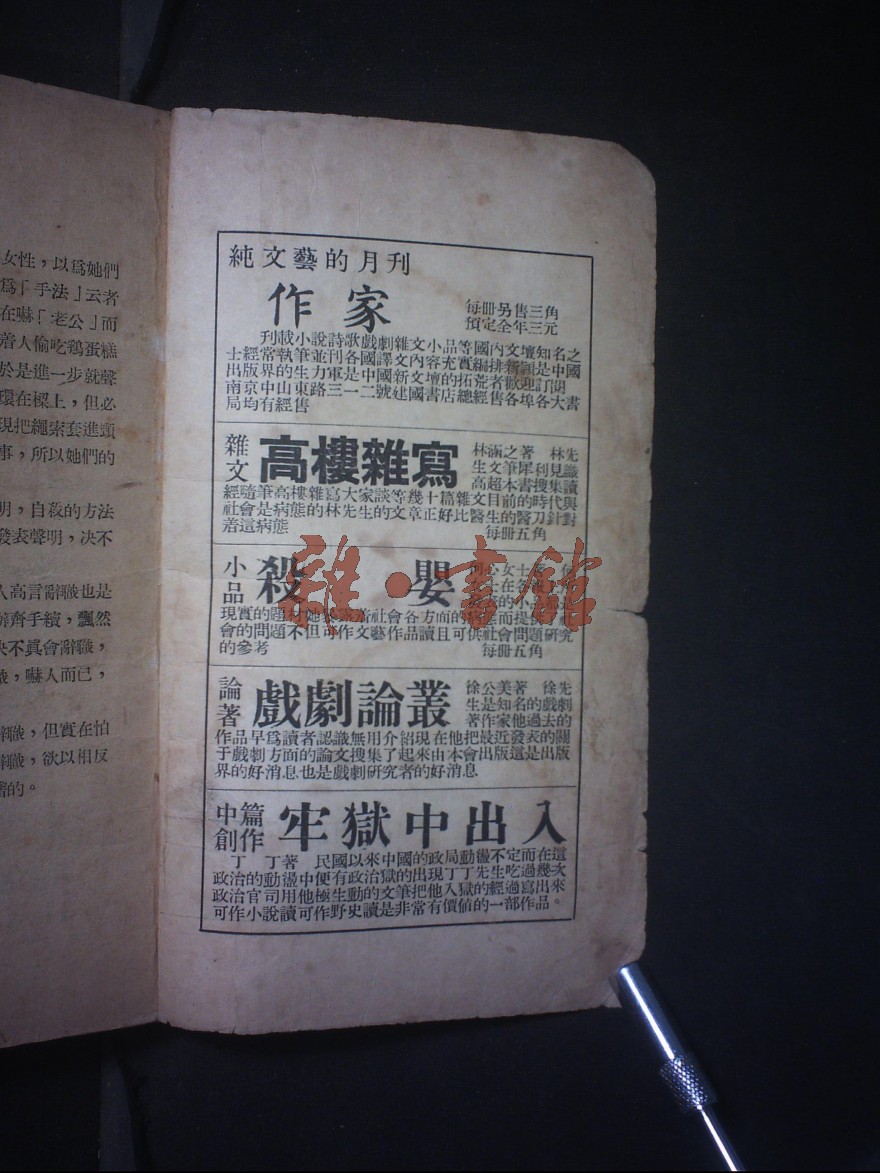 女性，以爲她們
爲「手法」云者
在嚇「老公」而
着人偷吃鷄蛋糕
於是進一步就聲
環在樑上，但必
現把繩索套進頭
事，所以她們的
明，自殺的方法
發表聲明，決不
人高言辭職也是
辦齊手續，飄然
决不眞會辭職，
職，嚇人而已，
辭職，但實在怕
辭職，欲以相反
著的。
純文藝的月刊
作家
每冊另售三角
預定全年三元
刊載小說詩歌戲劇雜文小品等國內文壇知名之
士經常執筆並刊各國譯文內容充實編排新穎是中國
出版界的生力軍是中國新文壇的拓荒者歡迎訂閱
南京中山東路三一二號建國書店總經售各埠各大書
局均有經售
雜文
高樓雜寫
林涵之著 林先
生文筆犀利見識
高超本書搜集讀
經隨筆高樓雜寫大家談等幾十篇雜文目前的時代與
社會是病態的林先生的文章正好比醫生的醫刀針對
着這病態 每冊五角
小品
殺嬰
現實的題材她
社會各方面的
而提
社
會的問題不但可作文藝作品讀且可供社會問題研究
的參考 每冊五角
雜·書館
論著
戲劇論叢
徐公美著 徐先
生是知名的戲劇
著作家他過去的
作品早爲讀者認識無用介紹現在他把最近發表的關
于戲劇方面的論文搜集了起來由本會出版這是出版
界的好消息也是戲劇研究者的好消息
中篇創作
牢獄中出入
丁丁著 民國以來中國的政局動盪不定而在這
政治的動盪中便有政治獄的出現丁丁先生吃過幾次
政治官司用他極生動的文筆把他入獄的經過寫出來。
可作小說讀可作野史讀是非常有價値的一部作品。